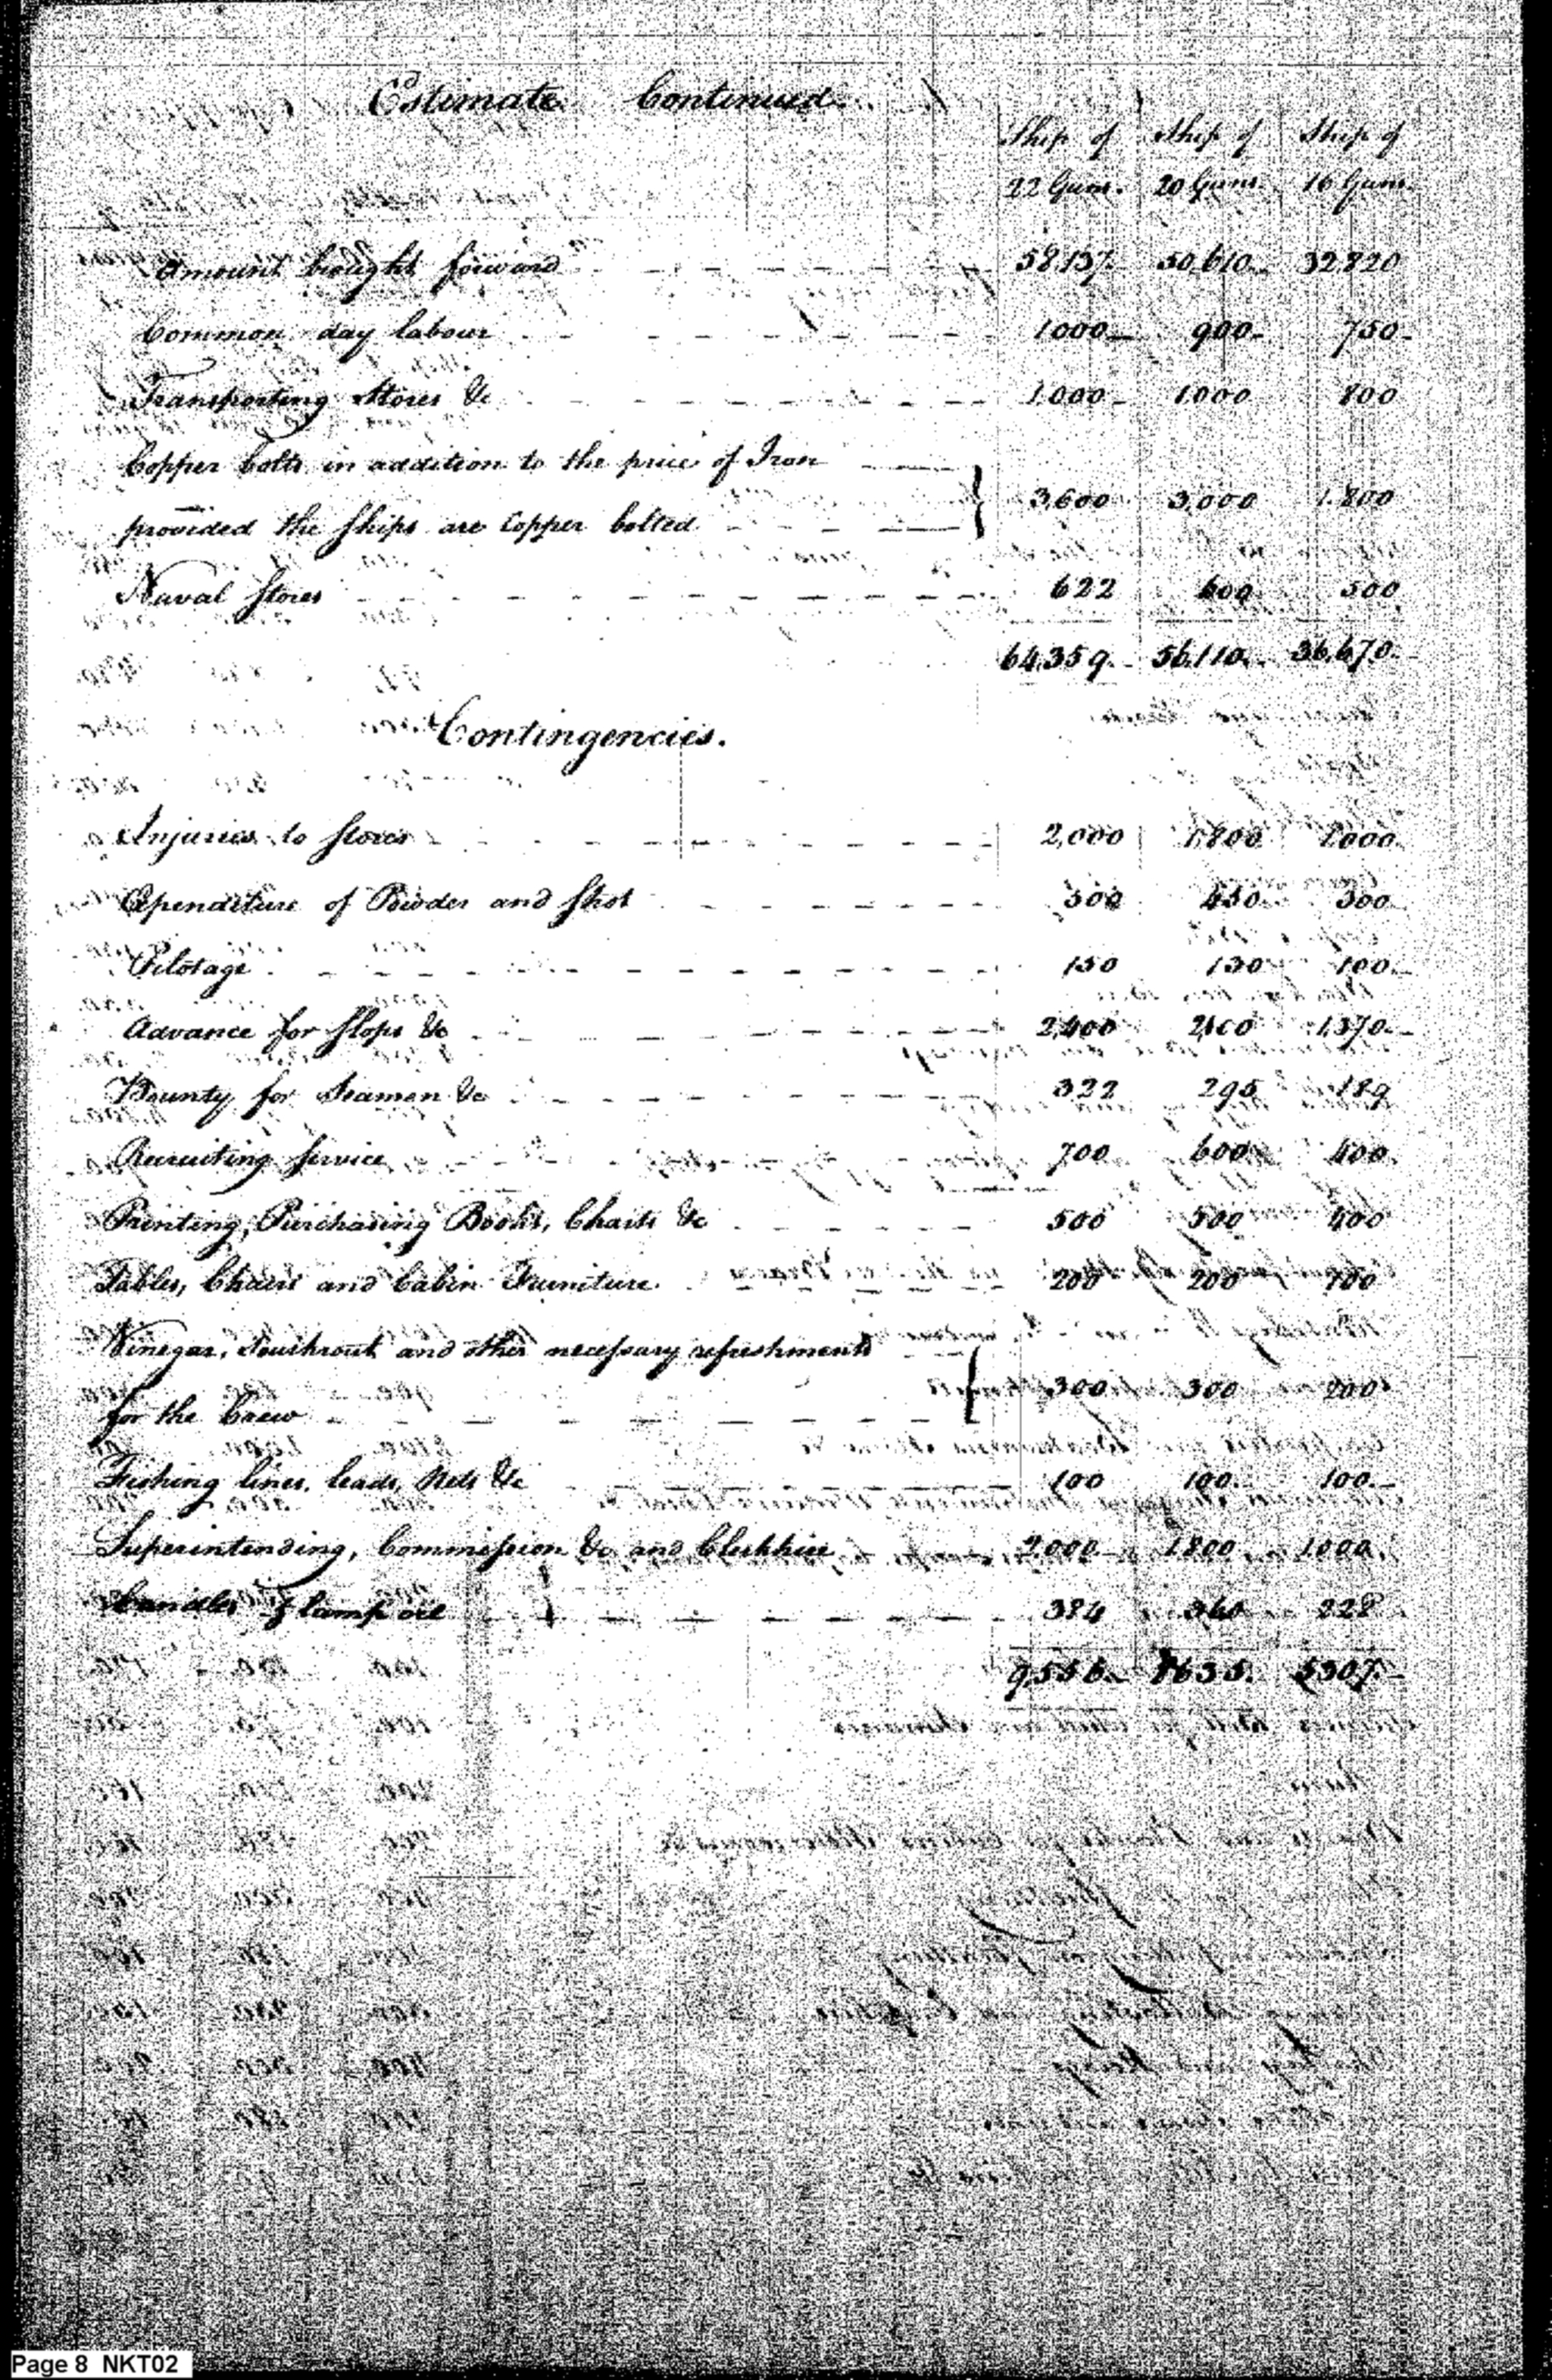 Estimate Continued.
Ship of Ship of Ship of
22 Guns. 20 Guns. 16 Guns.
Amount brought forward 58,137. 50,610. 32,820
Common day labour 1000 900 750
Transporting Stores &c 1.000 1000 800
Copper bolts in addition to the price of Iron
provided the Ships are Copper bolted } 3,600 3,000 1.800
Naval Stores 622 600 500
64,359. 56,110. 36,670.
Contingencies.
Injuries to Stores 2,000 1,800 1000
Expenditure of Powder and Shot 500 450 300
Pilotage 150 130 100
Advance for Slops &c 2,400 2,100 1,370
Bounty for Seamen &c 322 295 189
Recruiting Service 700 600 400
Printing, Purchasing Books, Charts &c 500 500 400
Tables, Chairs and Cabin Furniture 200 200 100
Vinegar, Sourkrout and other necessary refreshments
for the Crew } 300 300 200
Fishing lines, leads, Nets &c 100 100 100
Superintending, Commission &c and Clerkhire 2.000 1.800 1.000
Candles & lamp oil 384 360 228
9,556. 8635. 5387.
Page 8 NKT02